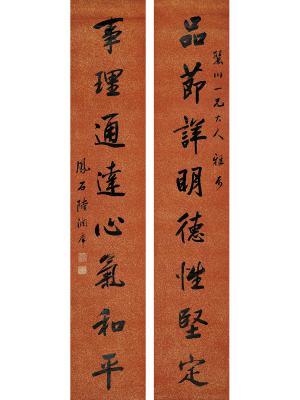 品節詳明德性堅定
川一兄大人雅屬
事理通達心氣和平
鳳石陸潤庠